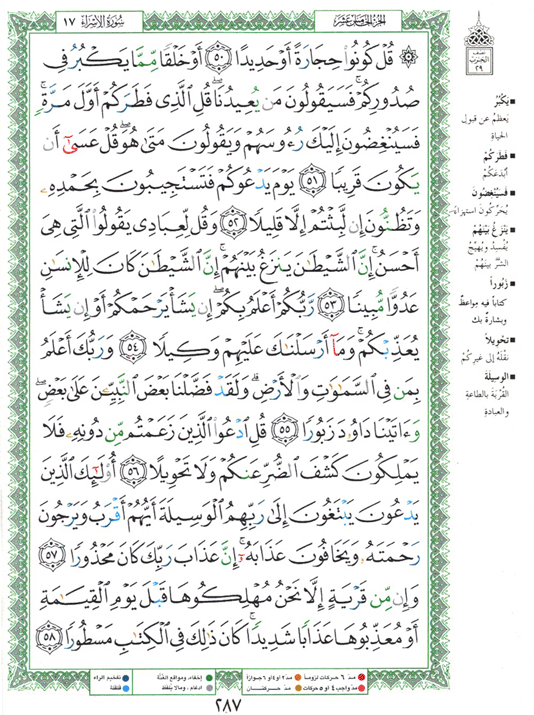 سُورَةُ الإِسْرَاءِ ١٧
الجُزءُ الخَامِسَ عَشَرَ
۞ قُلْ كُونُوا۟ حِجَارَةً أَوْ حَدِيدًا ۝٥٠ أَوْ خَلْقًا مِّمَّا يَكْبُرُ فِى
صُدُورِكُمْ ۚ فَسَيَقُولُونَ مَن يُعِيدُنَا ۖ قُلِ ٱلَّذِى فَطَرَكُمْ أَوَّلَ مَرَّةٍ ۚ
فَسَيُنْغِضُونَ إِلَيْكَ رُءُوسَهُمْ وَيَقُولُونَ مَتَىٰ هُوَ ۖ قُلْ عَسَىٰٓ أَن
يَكُونَ قَرِيبًا ۝٥١ يَوْمَ يَدْعُوكُمْ فَتَسْتَجِيبُونَ بِحَمْدِهِۦ
وَتَظُنُّونَ إِن لَّبِثْتُمْ إِلَّا قَلِيلًا ۝٥٢ وَقُل لِّعِبَادِى يَقُولُوا۟ ٱلَّتِى هِىَ
أَحْسَنُ ۚ إِنَّ ٱلشَّيْطَٰنَ يَنزَغُ بَيْنَهُمْ ۚ إِنَّ ٱلشَّيْطَٰنَ كَانَ لِلْإِنسَٰنِ
عَدُوًّا مُّبِينًا ۝٥٣ رَّبُّكُمْ أَعْلَمُ بِكُمْ ۖ إِن يَشَأْ يَرْحَمْكُمْ أَوْ إِن يَشَأْ
يُعَذِّبْكُمْ ۚ وَمَآ أَرْسَلْنَٰكَ عَلَيْهِمْ وَكِيلًا ۝٥٤ وَرَبُّكَ أَعْلَمُ
بِمَن فِى ٱلسَّمَٰوَٰتِ وَٱلْأَرْضِ ۗ وَلَقَدْ فَضَّلْنَا بَعْضَ ٱلنَّبِيِّـۧنَ عَلَىٰ بَعْضٍ ۖ
وَءَاتَيْنَا دَاوُۥدَ زَبُورًا ۝٥٥ قُلِ ٱدْعُوا۟ ٱلَّذِينَ زَعَمْتُم مِّن دُونِهِۦ فَلَا
يَمْلِكُونَ كَشْفَ ٱلضُّرِّ عَنكُمْ وَلَا تَحْوِيلًا ۝٥٦ أُو۟لَٰٓئِكَ ٱلَّذِينَ
يَدْعُونَ يَبْتَغُونَ إِلَىٰ رَبِّهِمُ ٱلْوَسِيلَةَ أَيُّهُمْ أَقْرَبُ وَيَرْجُونَ
رَحْمَتَهُۥ وَيَخَافُونَ عَذَابَهُۥٓ ۚ إِنَّ عَذَابَ رَبِّكَ كَانَ مَحْذُورًا ۝٥٧
وَإِن مِّن قَرْيَةٍ إِلَّا نَحْنُ مُهْلِكُوهَا قَبْلَ يَوْمِ ٱلْقِيَٰمَةِ
أَوْ مُعَذِّبُوهَا عَذَابًا شَدِيدًا ۚ كَانَ ذَٰلِكَ فِى ٱلْكِتَٰبِ مَسْطُورًا ۝٥٨
نصف
الحزب
٢٩
■ يَكْبُرُ
يَعظُمُ عن قبول
الحياة
■ فَطَرَكُمْ
أبْدَعَكُمْ
■ فَسَيُنْغِضُونَ
يُحرّكون استهزاءً
■ يَنْزَغُ بَيْنَهُمْ
يُفْسِدُ ويُهَيّجُ
الشّرَّ بينَهُمْ
■ زَبُوراً
كتاباً فيه مواعظُ
وبشارةٌ بك
■ تَحْوِيلاً
نَقْلَهُ إلى غيركُمْ
■ الوسيلة
القُرْبَةَ بالطاعةِ
والعبادةِ
مدّ ٦ حركات لزوماً مدّ ٢ أو ٤ أو ٦ جوازاً
مدّ واجب ٤ أو ٥ حركات مدّ حركتان
إخفاء، ومواقع الغُنَّة
ادغام، ومالا يُلفَظ
تفخيم الراء
قلقلة
٢٨٧